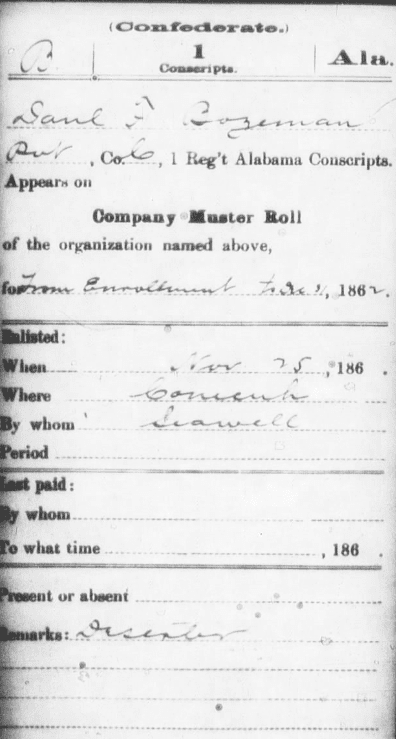 (Confederate.)
B | 1 Conscripts. | Ala.
Danl F Bozeman
Pvt, Co. C, 1 Reg't Alabama Conscripts.
Appears on
Company Muster Roll
of the organization named above,
for From Enrollment to 31, 1862.
Enlisted:
When Nov 25, 186 .
Where Conecuh
By whom Seawell
Period
Last paid:
By whom
To what time , 186 .
Present or absent
Remarks: Deserter